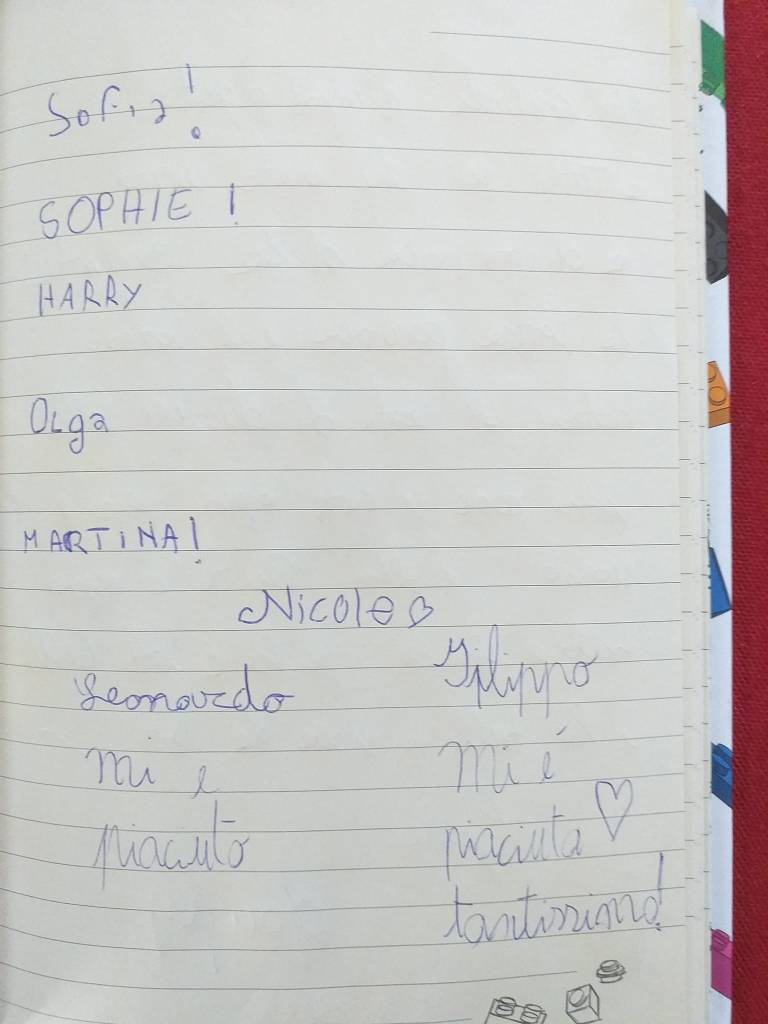 Sofia!
SOPHIE !
HARRY
OLga
MARTiNA!
Nicole
Leonardo
mi e
piaciuto
Filippo
Mi é
piaciuta
tantissimo!